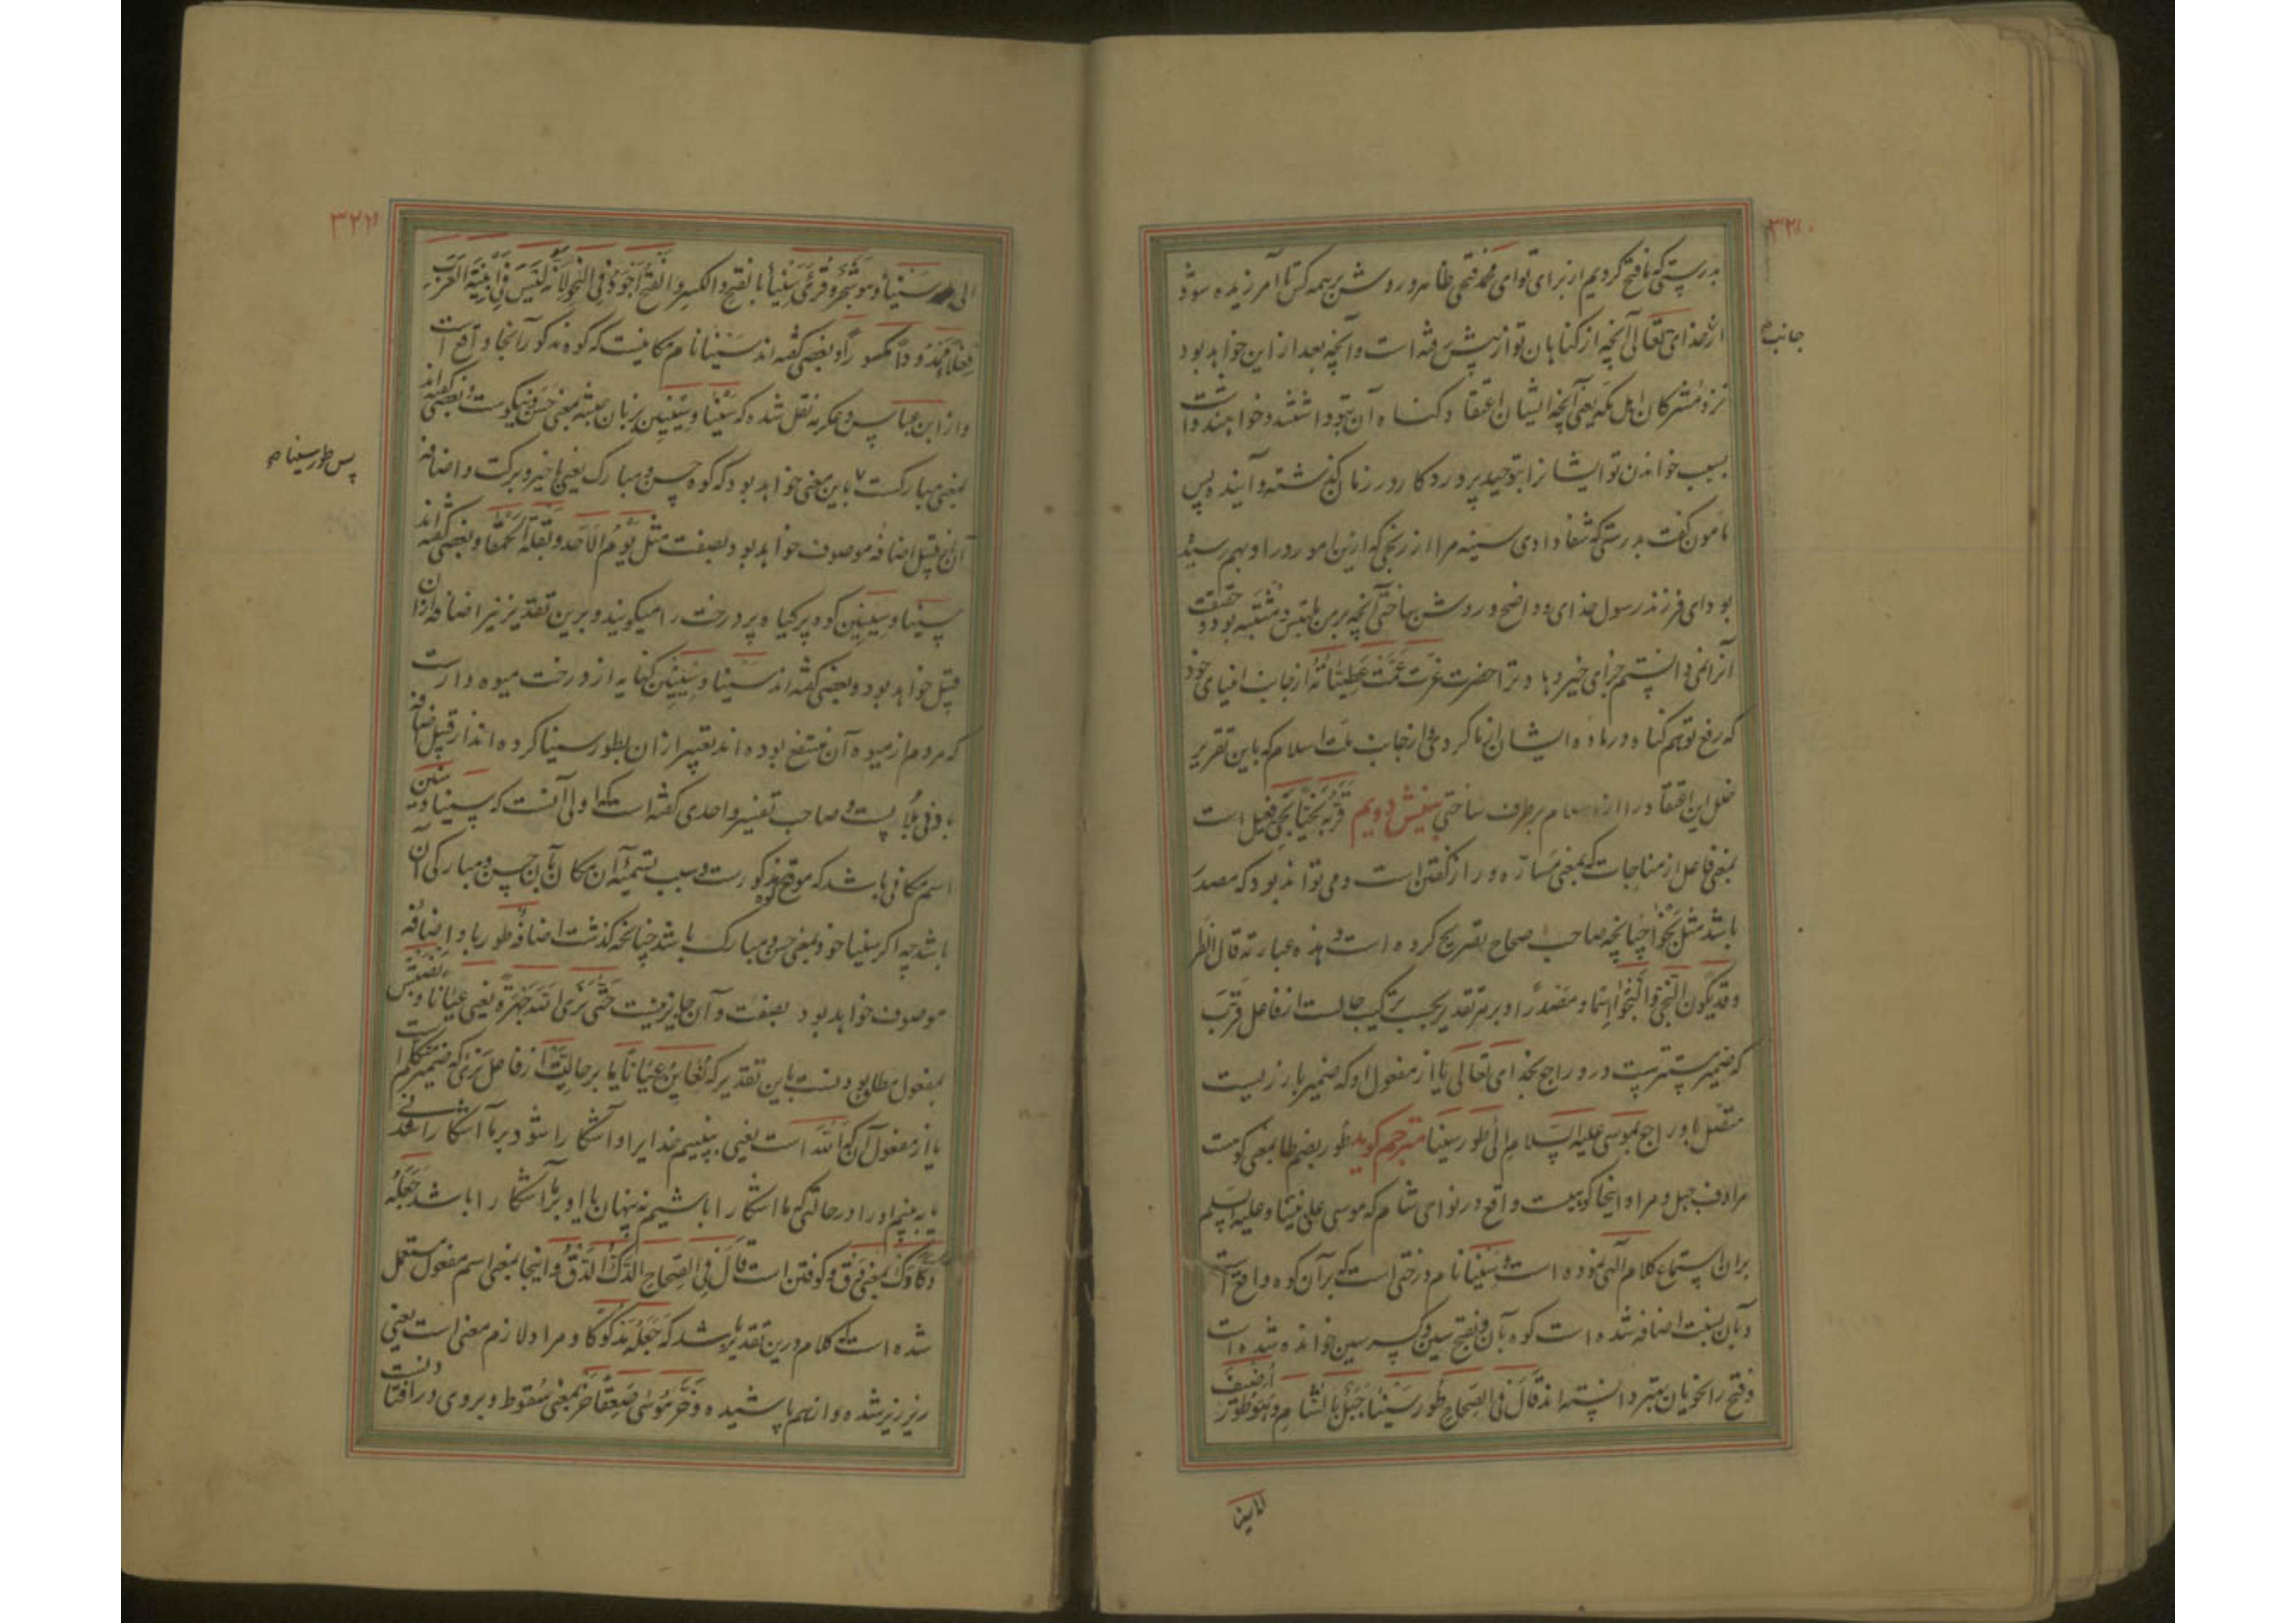 ۳۲۱
بدرستی که ما فتح کردیم از برای تو ای محمد فتحی ظاهر و روشن بر همه کس تا آمرزیده شود
جانب
از خدای تعالی آنچه از گناهان تو از پیش رفته است و آنچه بعد از این خواهد بود
نزد مشرکان اهل مکه یعنی آنچه ایشان اعتقاد گناه آن بتو داشتند و خواهند داشت
بسبب خواندن تو ایشانرا بتوحید پروردگار در زمان گذشته و آینده پس
مامون گفت بدرستی که شفا دادی سینه مرا از رنجی که ازین امور در او بهم رسیده
بود ای فرزند رسول خدای و واضح و روشن ساختی آنچه بر من ملتبس و مشتبه بود و حقیقت
آنرا نمی دانستم جزای خیر دهاد ترا حضرت عزت عمت عطیاته از جانب انبیای خود
که رفع توهم گناه در ماده ایشان از ما کردی و از جانب ملت اسلام که باین تقریر
خلل این اعتقاد را از اسلام برطرف ساختی بینش دویم قربه نجیا نجی فعیل است
بمعنی فاعل از مناجات که بمعنی مسارّه و راز گفتن است و می تواند بود که مصدر
باشد مثل نجوا چنانچه صاحب صحاح تصریح کرده است و هذه عبارته قال الفر
و قد یکون النجی و النجوا اسما و مصدرا و بر هر تقدیر بحسب ترکیب حالست از فاعل قرب
که ضمیر مستترست در و راجع بخدای تعالی یا از مفعول او که ضمیر بارزیست
متصل باو راجع بموسی علیه السلام الی طور سینا مترجم گوید طور بضم طا بمعنی کوهست
مرادف جبل و مراد اینجا کوهیست واقع در نواحی شام که موسی علی نبینا و علیه السلم
بران استماع کلام الهی نموده است و سینا نام درختی است که بر آن کوه واقع است
و بآن نسبت اضافه شده است کوه بآن و بفتح سین و کسر سین خوانده شده است
و فتح را نحویان بهتر دانسته اند قال فی الصحاح طور سیناء جبل بالشام و هو طور أضیف
الی سینا
۳۲۲
الی سیناء و هو شجر و قرئ سیناء بالفتح و الکسر و الفتح أجود فی النحو لأنه لیس فی ابنیة العرب
فعلاء ممدودا مکسورا و بعضی گفته اند سینا نام مکانیست که کوه مذکور آنجا واقع است
و از ابن عباس و عکرمه نقل شده که سینا و سینین بزبان حبشه بمعنی حسن و نیکوست و بعضی گفته اند
بمعنی مبارکست باین معنی خواهد بود که کوه حسن و مبارک یعنی با خیر و برکت و اضافه
پس طور سینا
آن از قبیل اضافه موصوف خواهد بود بصفت مثل یوم الاحد و بقلة الحمقا و بعضی گفته اند
سینا و سینین کوه پر گیاه پر درخت را میگویند و برین تقدیر نیز اضافه از ان
قبیل خواهد بود و بعضی گفته اند سینا و سینین کنایه از درخت میوه دارست
که مردم از میوه آن منتفع بوده اند تعبیر از ان بطور سینا کرده اند از قبیل اضافه
بادنی ملابست و صاحب تفسیر واحدی گفته است که اولی آنست که سینا و سینین
اسم مکانی باشد که موقع کوه مذکورست و سبب تسمیه آن مکان بآن حسن و مبارکی آن
باشد چه اگر سینا خود بمعنی حسن و مبارک باشد چنانچه گذشت اضافه طور باو اضافه
موصوف خواهد بود بصفت و آن جایز نیست حتی نری الله جهرة یعنی عیانا و نصبش
بمفعول مطلق بودنست باین تقدیر که نعاین عیانا یا بر حالیت از فاعل نری که ضمیر متکلم است
یا از مفعول آن که الله است یعنی ببینیم خدایرا و آشکارا شود بر ما آشکارا شدنی
یا ببینم او را در حالتی که ما آشکارا باشیم نه پنهان یا او بر ما آشکارا باشد جعله
دکا دک بمعنی دق و کوفتن است قال فی الصحاح الدک الدق و اینجا بمعنی اسم مفعول مستعمل
شده است که کلام درین تقدیر باشد که جعله مدکوکا و مراد لازم معنی است یعنی
ریز ریز شده و از هم پاشیده و خر موسی صعقا خر بمعنی سقوط و بروی در افتادنست